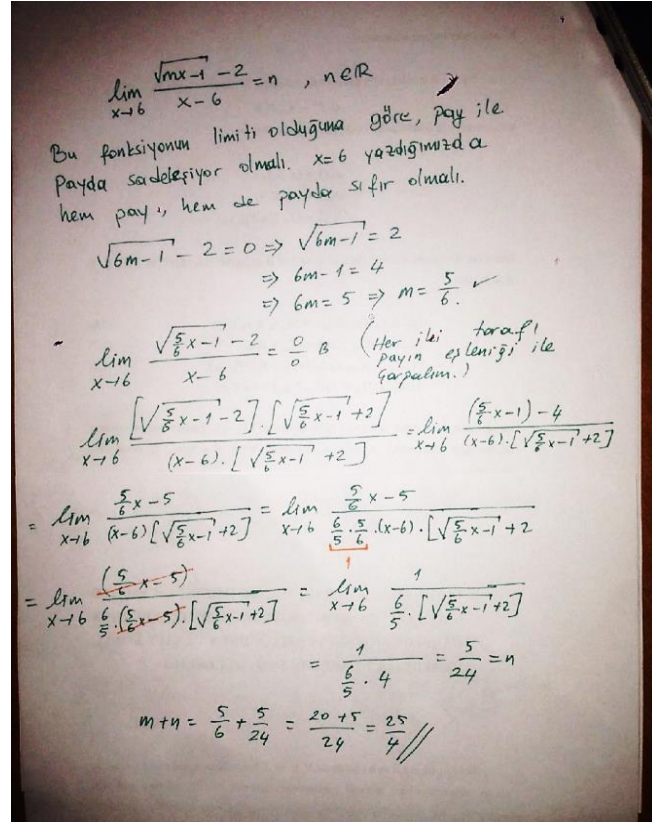 lim x→6 (√(mx-1) - 2)/(x-6) = n , n∈ℝ
Bu fonksiyonun limiti olduğuna göre, pay ile
Payda sadeleşiyor olmalı. x=6 yazdığımızda
hem payı, hem de payda sıfır olmalı.
√(6m-1) - 2 = 0 ⇒ √(6m-1) = 2
⇒ 6m-1 = 4
⇒ 6m = 5 ⇒ m = 5/6. ✓
lim x→6 (√(5/6 x-1) - 2)/(x-6) = 0/0 B (Her iki tarafı
payın eşleniği ile
çarpalım.)
lim x→6 ([√(5/6 x-1) - 2].[√(5/6 x-1) + 2])/((x-6).[√(5/6 x-1) + 2]) = lim x→6 ((5/6 x-1) - 4)/((x-6).[√(5/6 x-1) + 2])
= lim x→6 (5/6 x-5)/((x-6)[√(5/6 x-1) + 2]) = lim x→6 (5/6 x-5)/(6/5 . 5/6 .(x-6).[√(5/6 x-1) + 2
1
= lim x→6 (5/6 x-5)/(6/5 .(5/6 x-5).[√(5/6 x-1) + 2]) = lim x→6 1/(6/5 .[√(5/6 x-1) + 2])
= 1/(6/5 . 4) = 5/24 = n
m+n = 5/6 + 5/24 = (20+5)/24 = 25/4 //